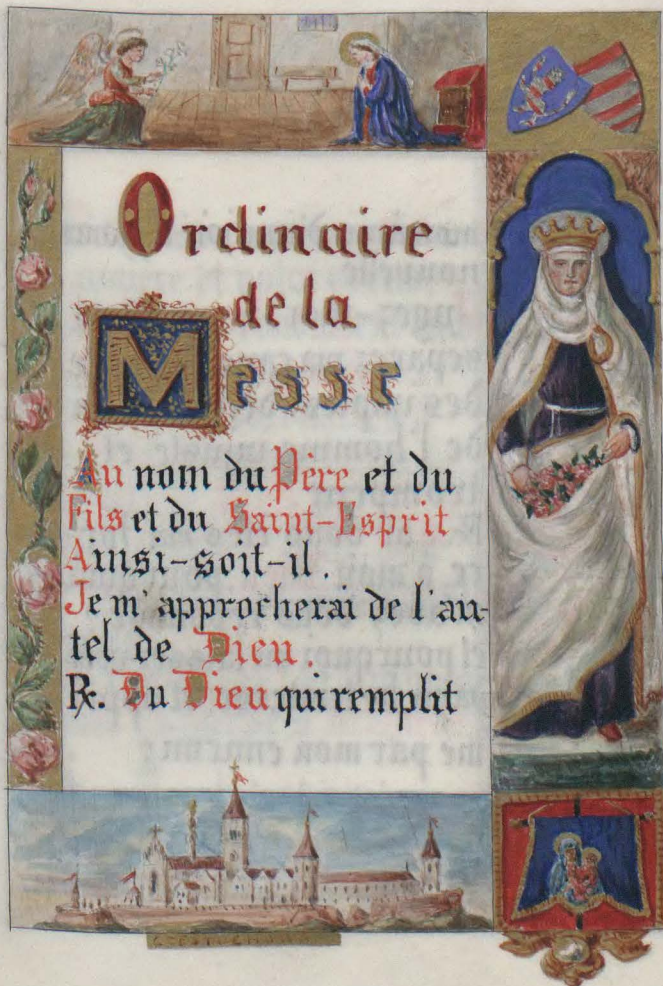 Ordinaire
de la
Messe
Au nom du Père et du
Fils et du Saint-Esprit
Ainsi-soit-il.
Je m'approcherai de l'au-
tel de Dieu.
℟. Du Dieu qui remplit